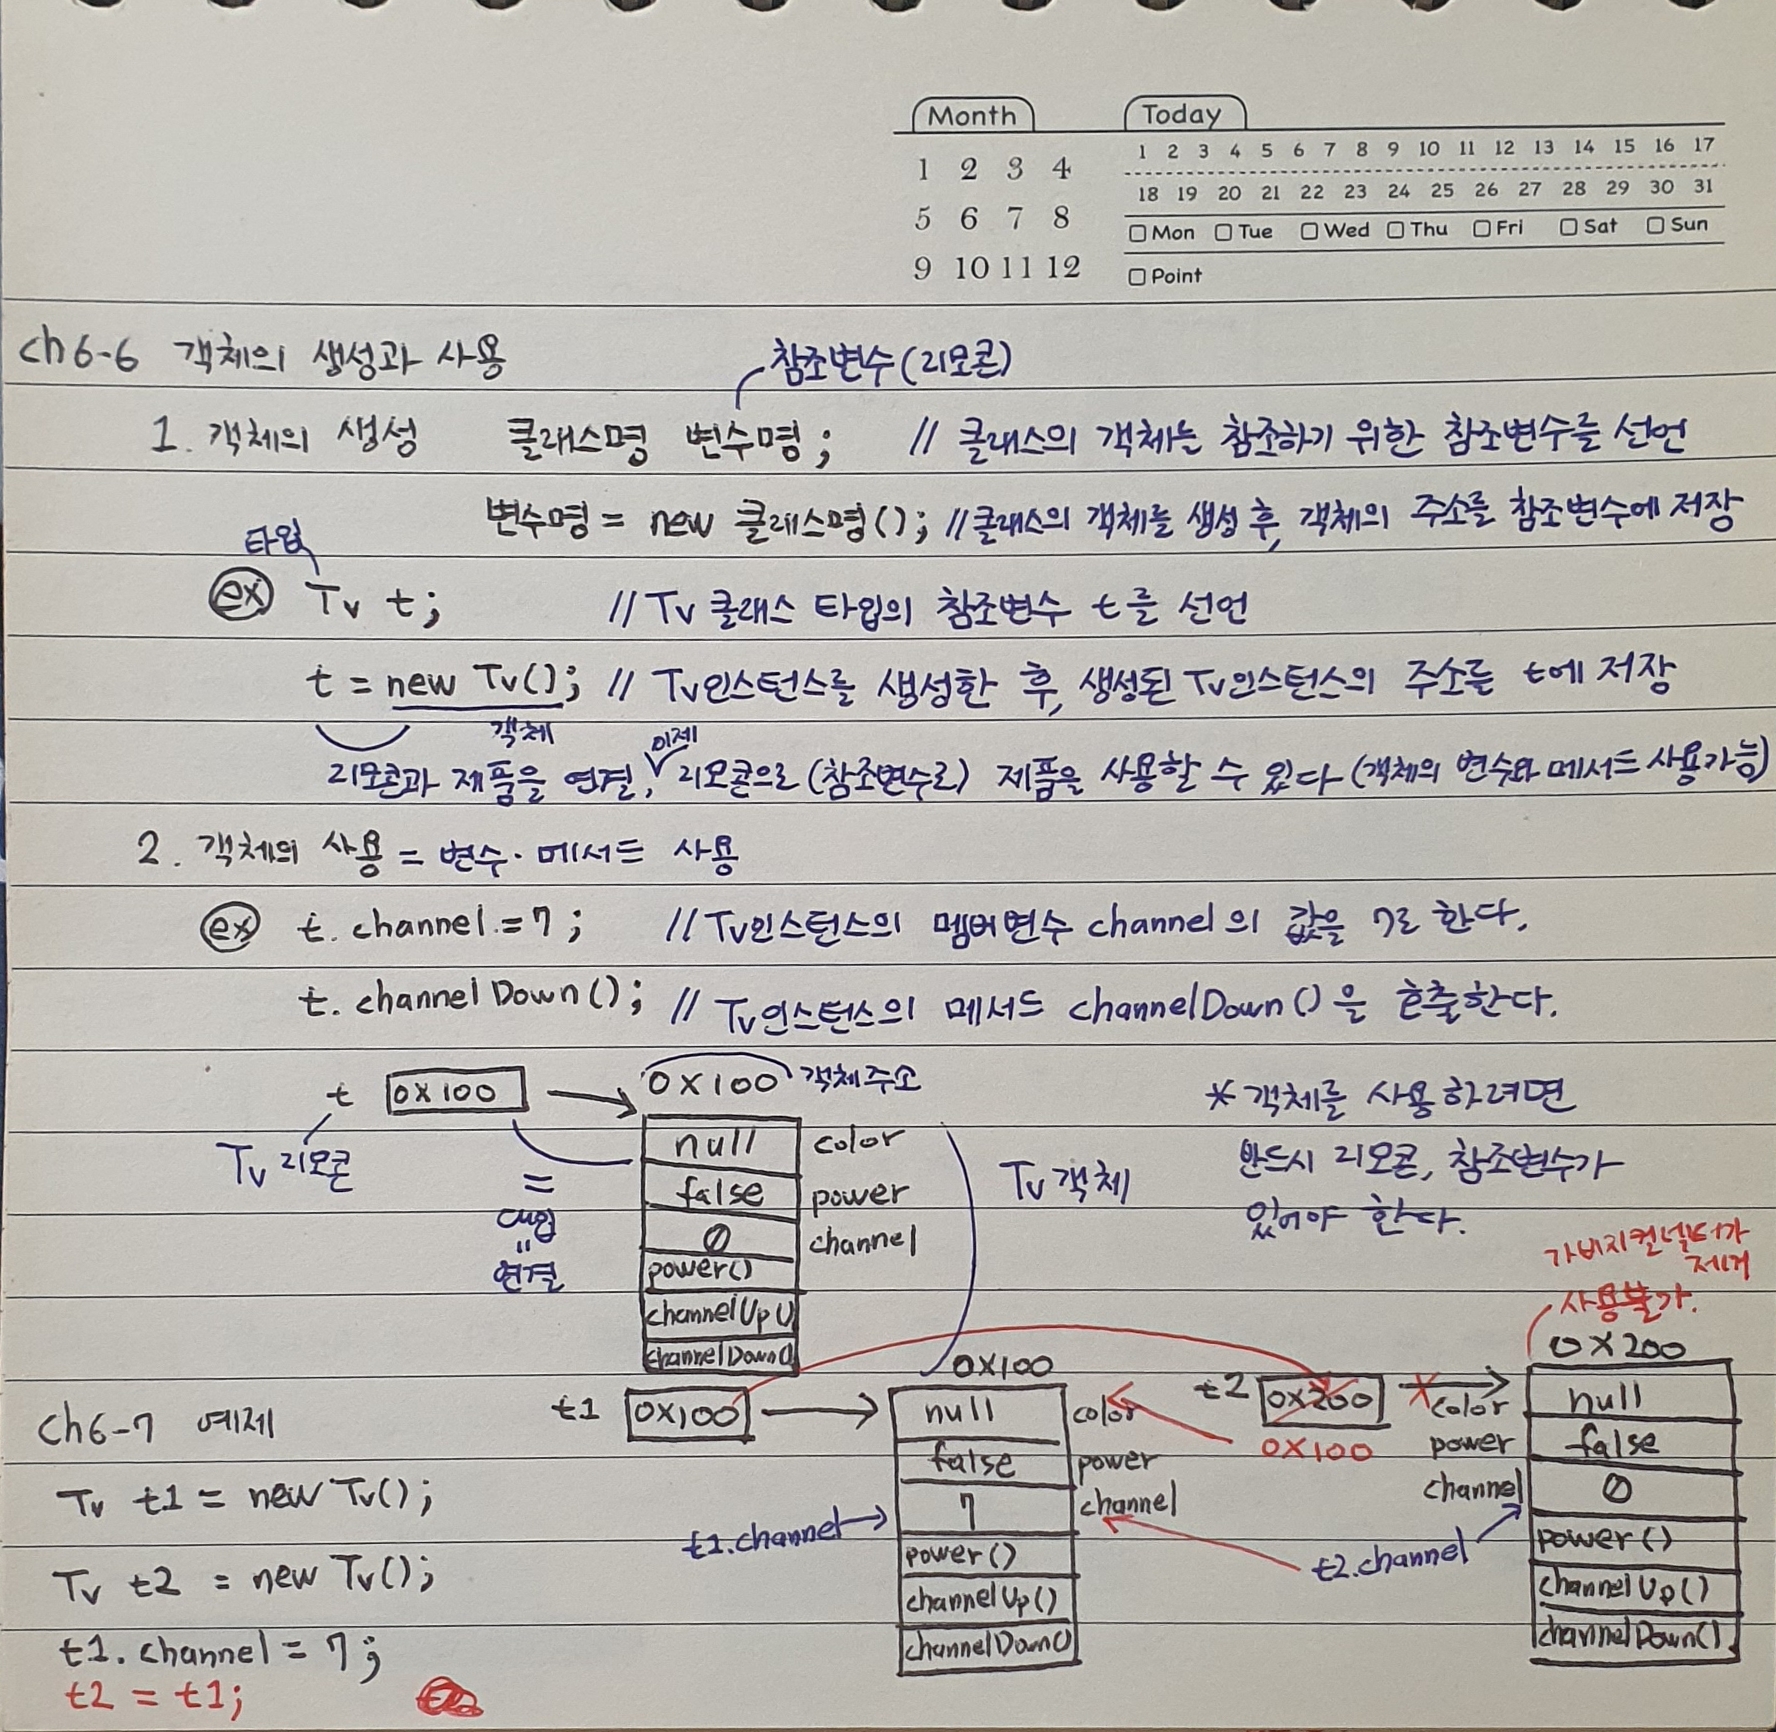 Month
Today
1 2 3 4
5 6 7 8
9 10 11 12
1 2 3 4 5 6 7 8 9 10 11 12 13 14 15 16 17
18 19 20 21 22 23 24 25 26 27 28 29 30 31
Mon Tue Wed Thu Fri Sat Sun
Point
ch6-6 객체의 생성과 사용
참조변수(리모콘)
1. 객체의 생성 클래스명 변수명; // 클래스의 객체는 참조하기 위한 참조변수를 선언
변수명 = new 클래스명(); //클래스의 객체를 생성 후, 객체의 주소를 참조변수에 저장
타입
ex Tv t; // Tv 클래스 타입의 참조변수 t를 선언
t = new Tv(); // Tv인스턴스를 생성한 후, 생성된 Tv인스턴스의 주소를 t에 저장
객체
이제
리모콘과 제품을 연결, 리모콘으로 (참조변수로) 제품을 사용할 수 있다 (객체의 변수와 메서드 사용가능)
2. 객체의 사용 = 변수·메서드 사용
ex t.channel = 7; // Tv인스턴스의 멤버변수 channel의 값을 7로 한다.
t.channelDown(); // Tv인스턴스의 메서드 channelDown()을 호출한다.
t 0x100 0x100 객체주소
Tv 리모콘
=
대입
"
연결
null color
false power
0 channel
power()
channelUp()
channelDown()
Tv 객체
* 객체를 사용하려면
반드시 리모콘, 참조변수가
있어야 한다.
가비지컬렉터가
제거
사용불가.
ch6-7 예제
Tv t1 = new Tv();
Tv t2 = new Tv();
t1.channel = 7;
t2 = t1;
t1 0x100
0x100
null color
false power
7 channel
power()
channelUp()
channelDown()
t1.channel
t2 0x200
0x100
t2.channel
0x200
color null
power false
channel 0
power()
channelUp()
channelDown()